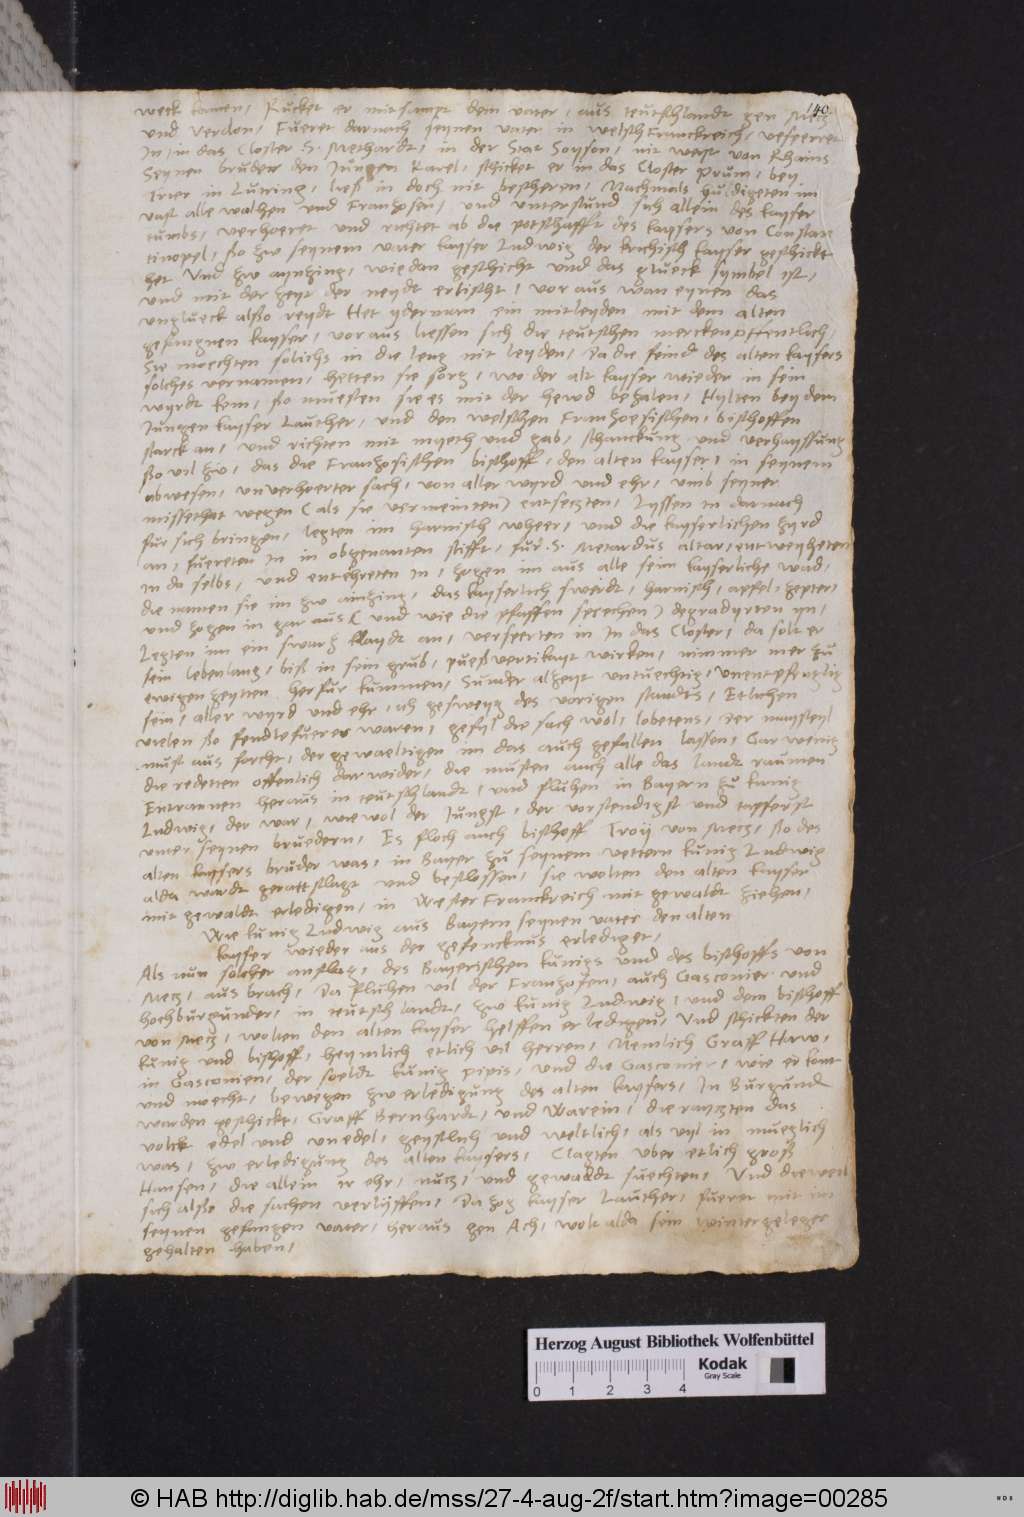 140
weck komen, Rucket er mitsampt dem vater, aus teutschlandt gen Metz
und Verdon, Fueret darnach seynen vater in welsch Franckreich, versperret
In, in das Closter S. Methardt, in der Stat Soyson, nit weyt von Rhains
Seynen bruder den Jungen Karel, schicket er in das Closter Prum, bey
Trier in Lutring, ließ in doch nit bescheren, Nachmals huldigeten im
vast alle walhen und Franzosen, und unterstund sich allein des kayser
tumbs, verhoeret und richtet ab die potschafft des kaysers von Constan
tinopel, so zw seynem vater kayser Ludwig der krichisch kayser geschickt
het Und zw aynzing, wie dan geschicht und das glueck synbel ist,
und mit der zeyt der neydt erlischt, voraus wan eynen das
unglueck alßo reydt Het yderman ein mitleyden mit dem alten
gefangnen kayser, voraus liessen sich die teutschen mercken offentlich,
Sie moechten solichs in die leng nit leyden, Da die feind des alten kaysers
solches vernamen, hetten sie sorg, wo der alt kayser wieder in sein
wyrdt kem, so muesten sie es mit der hewd bezalen, Hylten bey dem
Jungen kayser Lauther, und den welschen Franzoesischen, bischoffen
starck an, und richten mit myeth und gab, schanckung und verhayssung
so vil zw, das die Franzosischen bischoff, den alten kayser, in seynem
abwesen, unverhoerter sach, von aller wyrd und ehr, umb seyner
missethat wegen (als sie vermeinten) entsetzten, Lyssen in darnach
fur sich bringen, legten im harnisch wheer, und die kayserlichen zyrd
an, fuereten In in obgenanten stifft, fur S. Metardus altar, entweyheten
in da selbs, und entehreten in, zogen im aus alle sein kayserliche wad,
die namen sie im zw ainzing, das kayserlich swerdt, harnisch, apfel, zepter,
und zogen in gar aus (und wie die pfaffen sprechen) degradyrten yn,
Legten im ein swarz klaydt an, versperten in In das Closter, da solt er
sein lebenlang, biß in sein grub, pueß wirken, nimmer mer zu
ewigen zeytten herfur kummen, Sunder alzeyt untuechtig, Unentpfenglich
sein, aller wyrd und ehr, ich gesweyg des vorigen standts, Etlichen
vielen so fendlefuerer waren, gefyl die sach wol, lobetens, Der maysteyl
must aus forcht, der gewaeltigen im das auch gefallen lassen, Gar wenig
die redetten offenlich darwider, die musten auch alle das landt raumen
Entrannen heraus in teutschlandt, und fluhen in Bayern zu kunig
Ludwig, der war, wiewol der Jungst, der vorstendigst und tapfferst
unter seynen bruedern, Es floch auch bischoff Troij von Metz, so des
alten kaysers bruder was, in Bayer zu seynem vettern kunig Ludwig
alda wardt geratschlagt und beschlossen, sie wolten den alten kayser
mit gewaldt erledigen, in WesterFranckreich mit gewaldt ziehen,
Wie kunig Ludwig aus Bayern seynen vater den alten
kayser wieder aus der gefencknus erlediget,
Als nun solcher anschlag, des Bayerischen kunigs und des bischoffs von
Metz, aus brach, Da fluhen vil der Franzosen, auch Gasconier und
hochburgunder, in teutschlandt, zw kunig Ludwig, und dem bischoff
von Metz, wolten den alten kayser helffen erledigen, Und schickten der
kunig und bischoff, heymlich etlich vil herren, Nemlich Graff Haw,
in Gasconien, der soeldt kunig pipis, und die Gasconier, wie er kont
und moecht, bewegen zw erledigung des alten kaysers, In Burgund
wurden geschickt, Graff Bernhardt, und Warein, die raytzten das
volck edel und unedel, geystlich und weltlich, als vyl in mueglich
was, zw erledigung des alten kaysers, Clagten uber etlich groß
Hansen, die allein ir ehr, nutz, und gewaldt suechten, Und dieweil
sich alßo die sachen verlyffen, Da zog kayser Lauther, fueret mit im
seynen gefangen vater, heraus gen Ach, wolt alda sein wintergeleger
gehalten haben,
Herzog August Bibliothek Wolfenbüttel
0 1 2 3 4
Kodak
Gray Scale
© HAB http://diglib.hab.de/mss/27-4-aug-2f/start.htm?image=00285